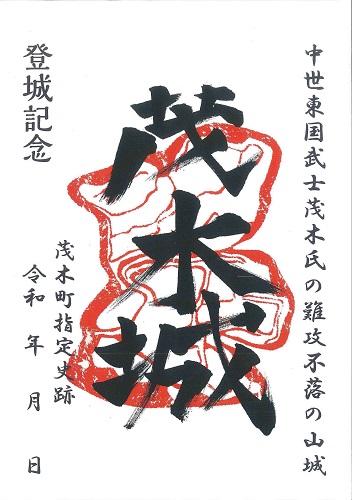 中世東国武士茂木氏の難攻不落の山城
茂木城
登城記念
茂木町指定史跡
令和　年　月　日